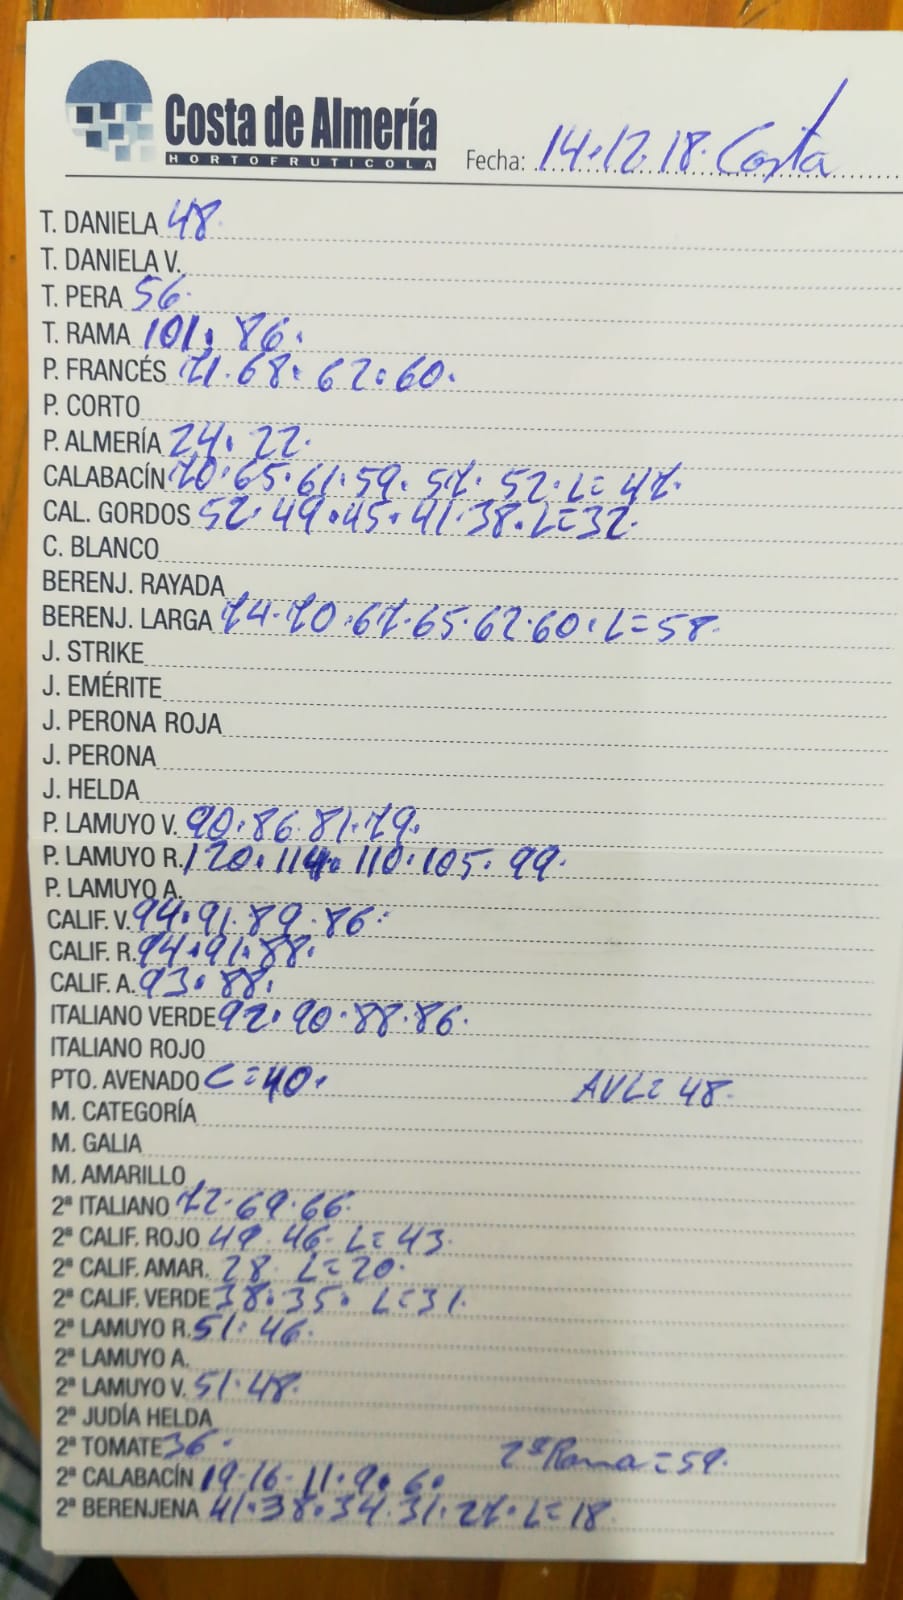 Costa de Almería
HORTOFRUTICOLA
Fecha: 14.12.18. Costa
T. DANIELA 48.
T. DANIELA V.
T. PERA 56.
T. RAMA 101. 86.
P. FRANCÉS 71.68.62.60.
P. CORTO
P. ALMERÍA 24. 22.
CALABACÍN 70.65.61.59.57.52.L=47.
CAL. GORDOS 52.49.45.41.38.L=32.
C. BLANCO
BERENJ. RAYADA
BERENJ. LARGA 74.70.67.65.62.60.L=58.
J. STRIKE
J. EMÉRITE
J. PERONA ROJA
J. PERONA
J. HELDA
P. LAMUYO V. 90.86.81.79.
P. LAMUYO R. 120.114.110.105.99.
P. LAMUYO A.
CALIF. V. 94.91.89.86.
CALIF. R. 94.91.88.
CALIF. A. 93.88.
ITALIANO VERDE 92.90.88.86.
ITALIANO ROJO
PTO. AVENADO C=40. AVL=48.
M. CATEGORÍA
M. GALIA
M. AMARILLO
2ª ITALIANO 72.69.66.
2ª CALIF. ROJO 49.46.L=43.
2ª CALIF. AMAR. 28. L=20.
2ª CALIF. VERDE 38.35. L=31.
2ª LAMUYO R. 51.46.
2ª LAMUYO A.
2ª LAMUYO V. 51.48.
2ª JUDÍA HELDA
2ª TOMATE 36. 2ª Rama=59.
2ª CALABACÍN 19-16-11.9.6.
2ª BERENJENA 41.38.34.31.27.L=18.